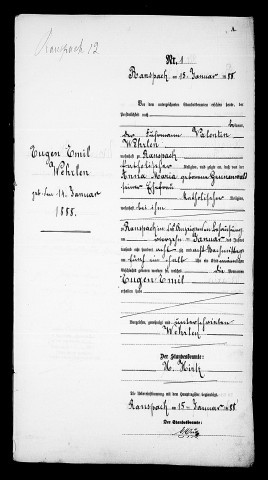 Ranspach 12
Nr. 1
Ranspach am 15. Januar 1888.
Vor dem unterzeichneten Standesbeamten erschien heute, der
Persönlichkeit nach
der Valentin
Wehrlen
wohnhaft zu Ranspach
katholischer Religion, und zeigte an, daß von der
Anna Maria geborenen Grunenwald
seiner Ehefrau
katholischer Religion,
wohnhaft bei ihm
zu Ranspach in
am vierzehn ten Januar des Jahres
tausend acht hundert achtzig und acht Nachmittags
um fünf ein halb Uhr ein Kind männlichen
Geschlechts geboren worden sei, welches die Vornamen
Eugen Emil
erhalten habe
Eugen Emil
Wehrlen
geb. den 14. Januar
1888.
Vorgelesen, genehmigt und unterschrieben
Wehrlen
Der Standesbeamte:
Die Übereinstimmung mit dem Hauptregister beglaubigt
Ranspach am 15. Januar 1888
Der Standesbeamte: